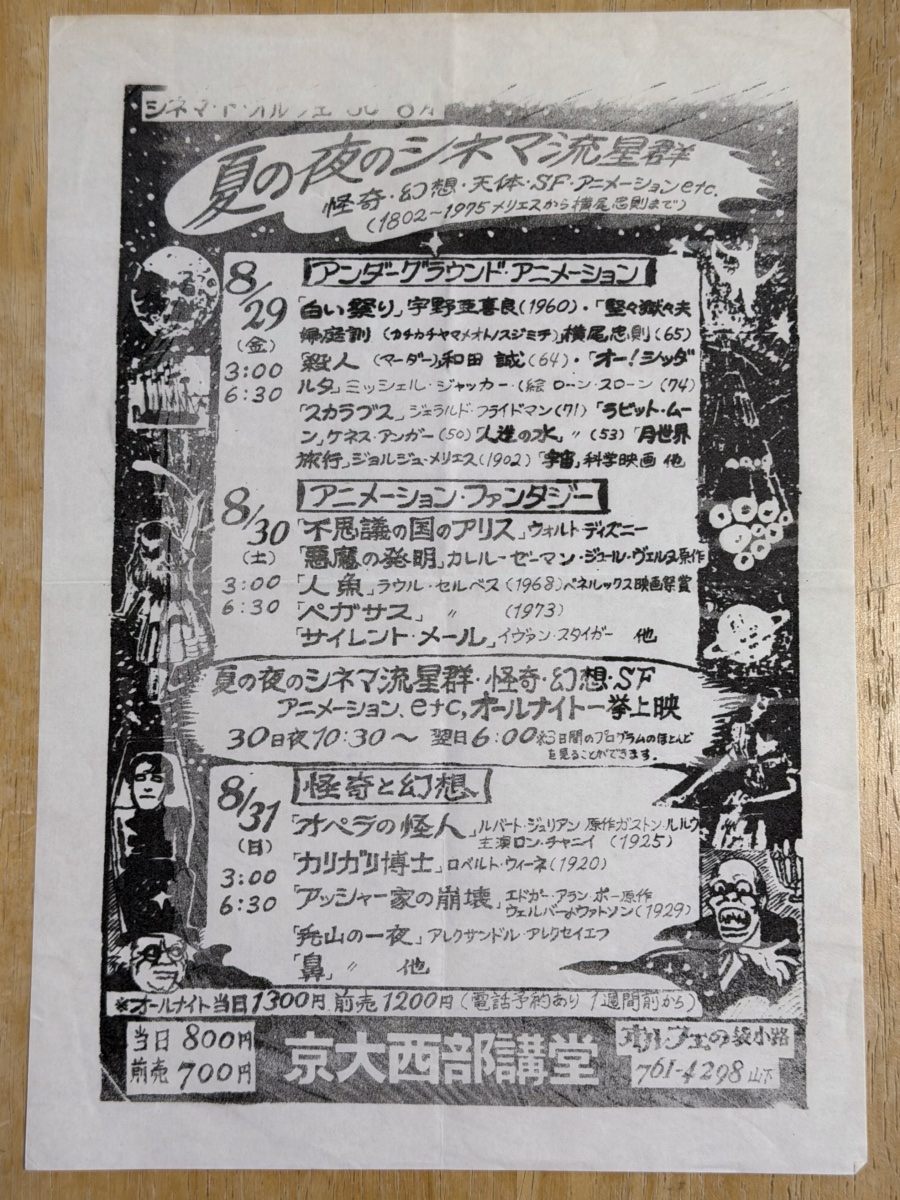 シネマ・ド・オルフェ
夏の夜のシネマ流星群
怪奇・幻想・天体・SF・アニメーションetc.
(1802〜1975メリエスから横尾忠則まで)
8/29
(金)
3:00
6:30
アンダーグラウンド・アニメーション
「白い祭り」宇野亜喜良(1960)・「堅々嶽々夫
婦庭訓(カチカチヤマメオトノスジミチ)」横尾忠則(65)
「殺人(マーダー)」和田誠(64)・「オー!シッダ
ルタ」ミッシェル・ジャッカー・(絵ローン・スローン(74)
「スカラブス」ジェラルド・フライドマン(71)「ラビット・ムー
ン」ケネス・アンガー(50)「人造の水」〃(53)「月世界
旅行」ジョルジュ・メリエス(1902)「宇宙」科学映画 他
8/30
(土)
3:00
6:30
アニメーション・ファンタジー
「不思議の国のアリス」ウォルト・ディズニー
「悪魔の発明」カレル・ゼーマン・ジュール・ヴェルヌ原作
「人魚」ラウル・セルベス(1968)ベネルックス映画祭賞
「ペガサス」〃(1973)
「サイレント・メール」イヴァン・スタイガー 他
夏の夜のシネマ流星群・怪奇・幻想・SF
アニメーション、etc,オールナイト一挙上映
30日夜10:30〜翌日6:00 ※3日間のプログラムのほとんど
を見ることができます。
8/31
(日)
3:00
6:30
怪奇と幻想
「オペラの怪人」ルパート・ジュリアン 原作ガストン・ルルウ
主演ロン・チャニイ(1925)
「カリガリ博士」ロベルト・ウィーネ(1920)
「アッシャー家の崩壊」エドガー・アラン・ポー原作
ウェルバー&ワトソン(1929)
「禿山の一夜」アレクサンドル・アレクセイエフ
「鼻」〃 他
※オールナイト当日1300円 前売1200円(電話予約あり 1週間前から)
当日800円
前売700円
京大西部講堂
オルフェの袋小路
761-4298 山下